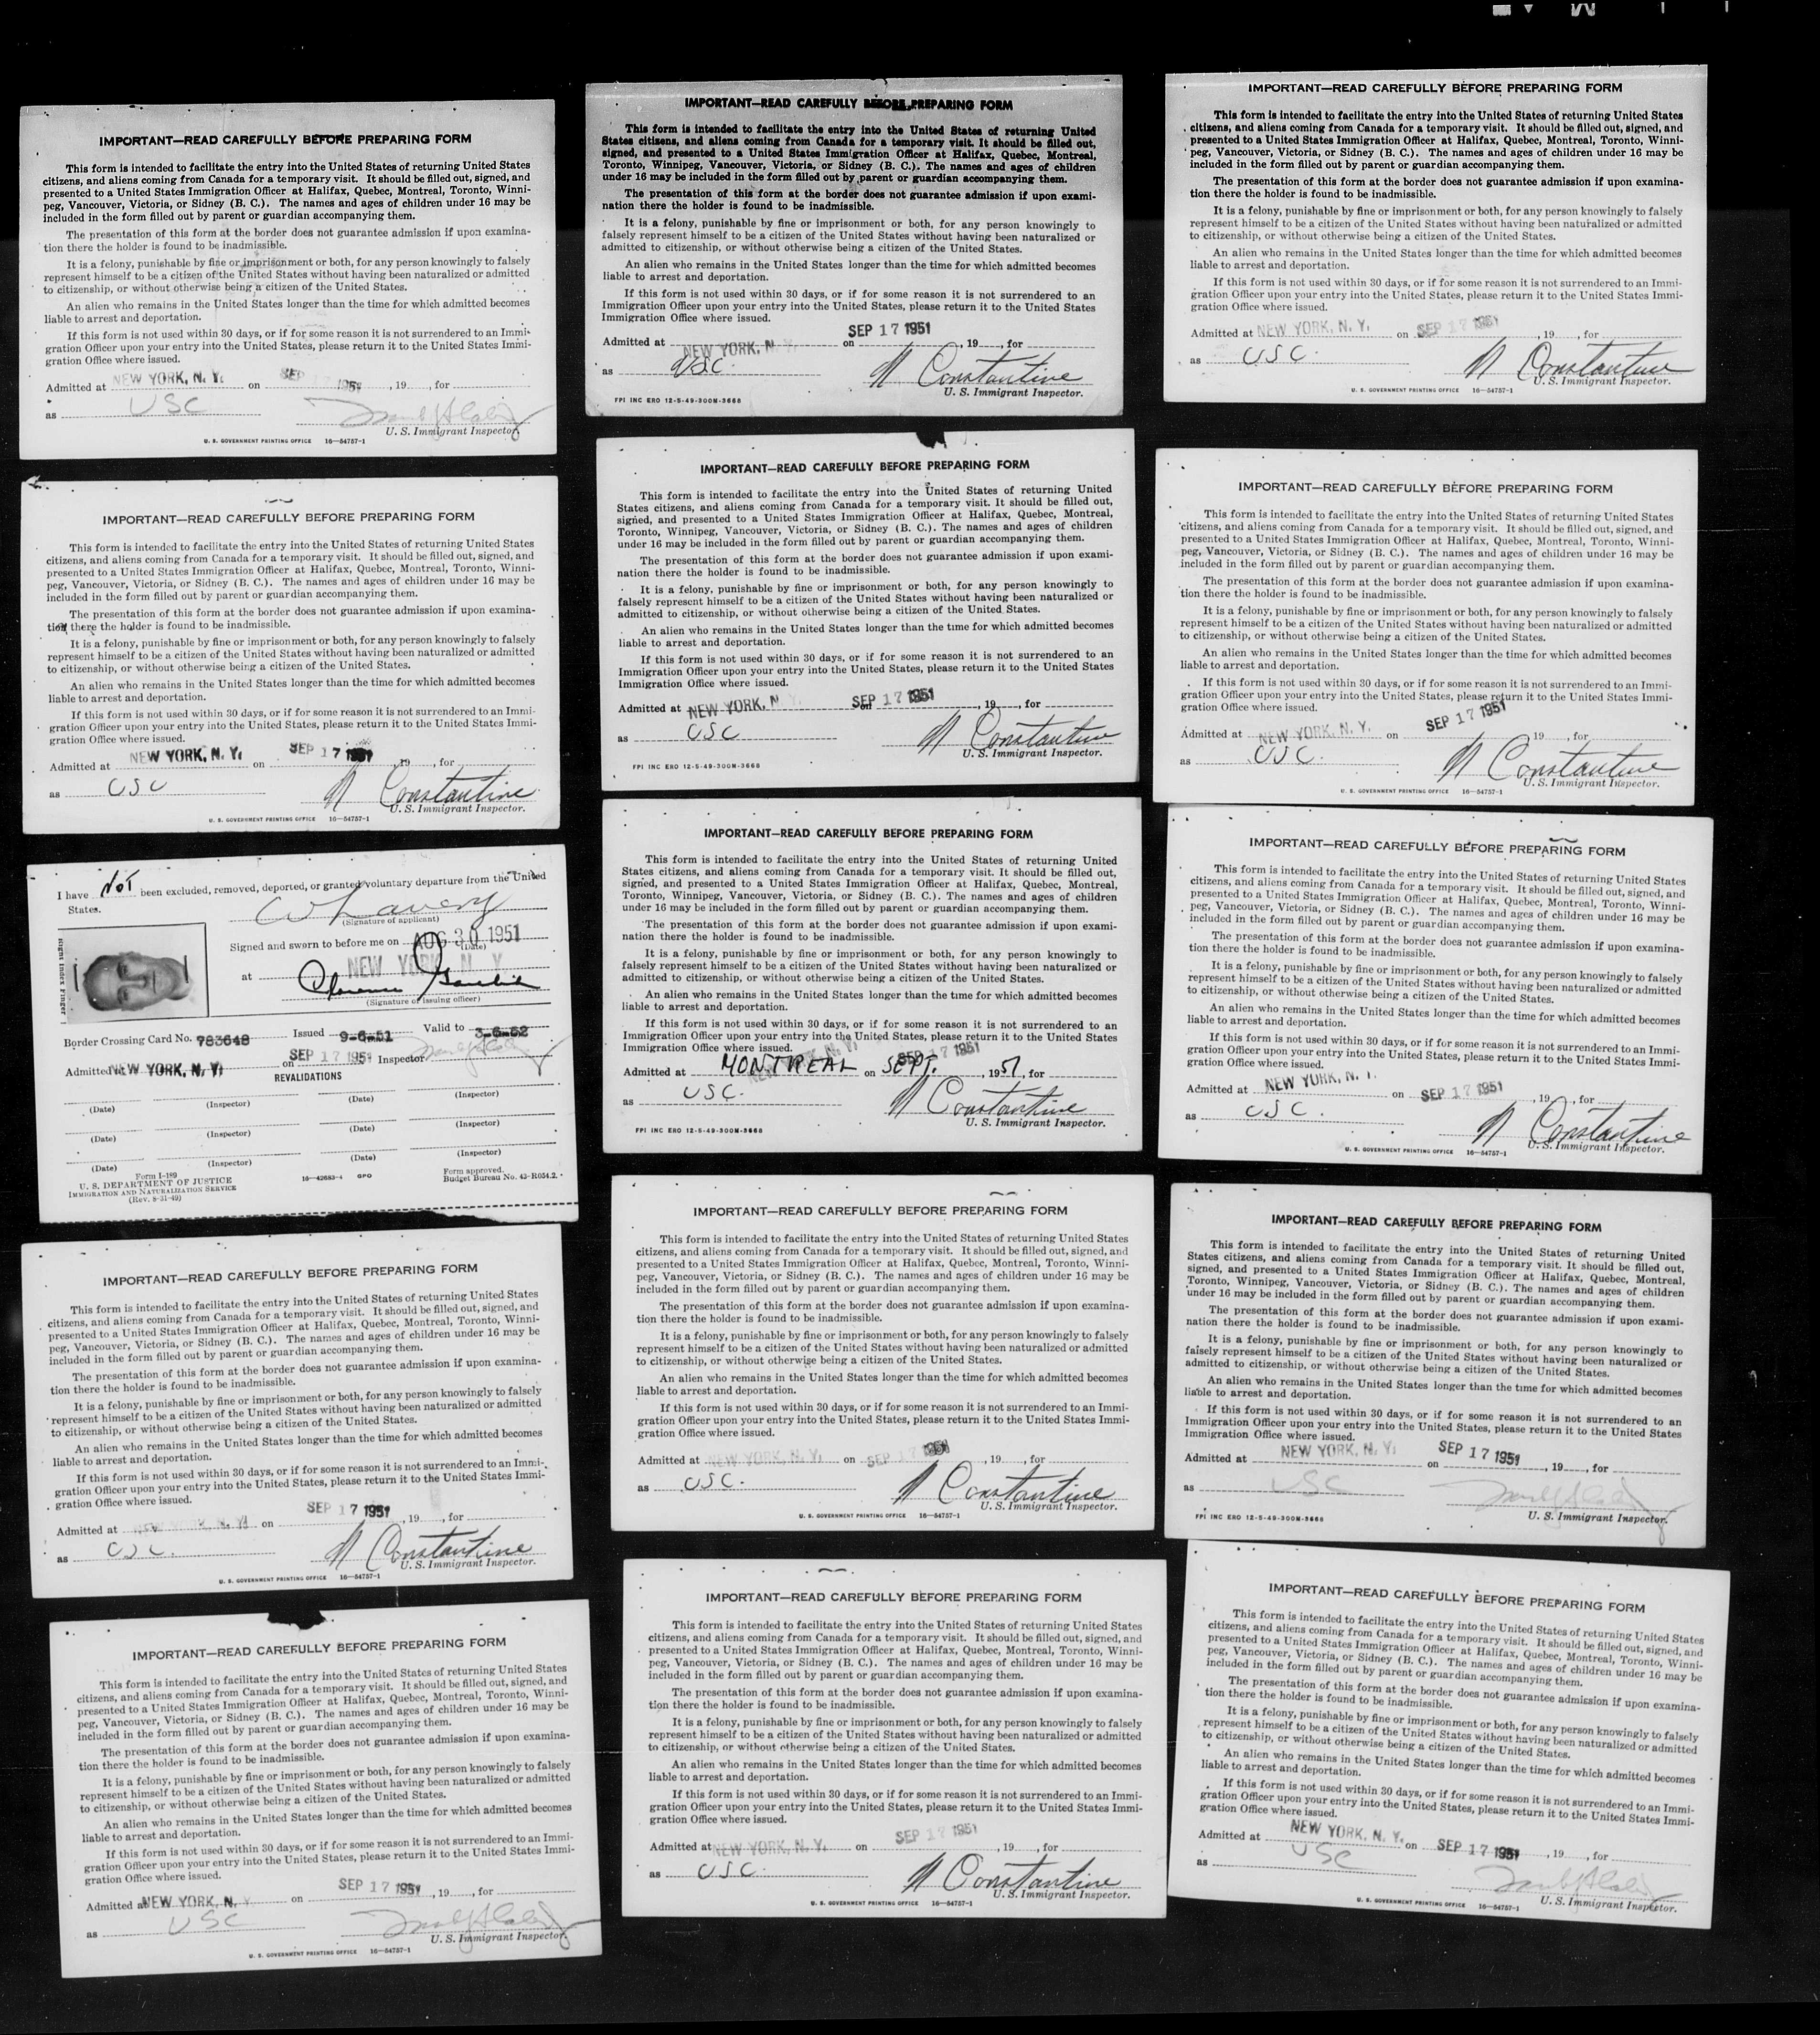 IMPORTANT—READ CAREFULLY BEFORE PREPARING FORM
This form is intended to facilitate the entry into the United States of returning United States
citizens, and aliens coming from Canada for a temporary visit. It should be filled out, signed, and
presented to a United States Immigration Officer at Halifax, Quebec, Montreal, Toronto, Winni-
peg, Vancouver, Victoria, or Sidney (B. C.). The names and ages of children under 16 may be
included in the form filled out by parent or guardian accompanying them.
The presentation of this form at the border does not guarantee admission if upon examina-
tion there the holder is found to be inadmissible.
It is a felony, punishable by fine or imprisonment or both, for any person knowingly to falsely
represent himself to be a citizen of the United States without having been naturalized or admitted
to citizenship, or without otherwise being a citizen of the United States.
An alien who remains in the United States longer than the time for which admitted becomes
liable to arrest and deportation.
If this form is not used within 30 days, or if for some reason it is not surrendered to an Immi-
gration Officer upon your entry into the United States, please return it to the United States Immi-
gration Office where issued.
Admitted at NEW YORK, N. Y. on SEP 17 1951, 19, for
as USC
U. S. Immigrant Inspector.
U. S. GOVERNMENT PRINTING OFFICE 16—54757-1
IMPORTANT—READ CAREFULLY BEFORE PREPARING FORM
This form is intended to facilitate the entry into the United States of returning United States
citizens, and aliens coming from Canada for a temporary visit. It should be filled out, signed, and
presented to a United States Immigration Officer at Halifax, Quebec, Montreal, Toronto, Winni-
peg, Vancouver, Victoria, or Sidney (B. C.). The names and ages of children under 16 may be
included in the form filled out by parent or guardian accompanying them.
The presentation of this form at the border does not guarantee admission if upon examina-
tion there the holder is found to be inadmissible.
It is a felony, punishable by fine or imprisonment or both, for any person knowingly to falsely
represent himself to be a citizen of the United States without having been naturalized or admitted
to citizenship, or without otherwise being a citizen of the United States.
An alien who remains in the United States longer than the time for which admitted becomes
liable to arrest and deportation.
If this form is not used within 30 days, or if for some reason it is not surrendered to an Immi-
gration Officer upon your entry into the United States, please return it to the United States Immi-
gration Office where issued.
Admitted at NEW YORK, N. Y. on SEP 17 1951, 19, for
as USC N Constantine
U. S. Immigrant Inspector.
U. S. GOVERNMENT PRINTING OFFICE 16—54757-1
I have NOT been excluded, removed, deported, or granted voluntary departure from the United
States.
W Lavery
(Signature of applicant)
Signed and sworn to before me on AUG 30 1951
(Date)
at NEW YORK N Y
(Signature of issuing officer)
Border Crossing Card No. 783648 Issued 9-6-51 Valid to 3-6-52
Admitted NEW YORK, N. Y. on SEP 17 1951 Inspector
REVALIDATIONS
(Date) (Inspector) (Date) (Inspector)
(Date) (Inspector) (Date) (Inspector)
(Date) (Inspector) (Date) (Inspector)
Form I-189
U. S. DEPARTMENT OF JUSTICE
IMMIGRATION AND NATURALIZATION SERVICE
(Rev. 8-31-49)
16—42683-4 GPO
Form approved.
Budget Bureau No. 43-R054.2.
IMPORTANT—READ CAREFULLY BEFORE PREPARING FORM
This form is intended to facilitate the entry into the United States of returning United States
citizens, and aliens coming from Canada for a temporary visit. It should be filled out, signed, and
presented to a United States Immigration Officer at Halifax, Quebec, Montreal, Toronto, Winni-
peg, Vancouver, Victoria, or Sidney (B. C.). The names and ages of children under 16 may be
included in the form filled out by parent or guardian accompanying them.
The presentation of this form at the border does not guarantee admission if upon examina-
tion there the holder is found to be inadmissible.
It is a felony, punishable by fine or imprisonment or both, for any person knowingly to falsely
represent himself to be a citizen of the United States without having been naturalized or admitted
to citizenship, or without otherwise being a citizen of the United States.
An alien who remains in the United States longer than the time for which admitted becomes
liable to arrest and deportation.
If this form is not used within 30 days, or if for some reason it is not surrendered to an Immi-
gration Officer upon your entry into the United States, please return it to the United States Immi-
gration Office where issued.
Admitted at NEW YORK, N. Y. on SEP 17 1951, 19, for
as USC. N Constantine
U. S. Immigrant Inspector.
U. S. GOVERNMENT PRINTING OFFICE 16—54757-1
IMPORTANT—READ CAREFULLY BEFORE PREPARING FORM
This form is intended to facilitate the entry into the United States of returning United States
citizens, and aliens coming from Canada for a temporary visit. It should be filled out, signed, and
presented to a United States Immigration Officer at Halifax, Quebec, Montreal, Toronto, Winni-
peg, Vancouver, Victoria, or Sidney (B. C.). The names and ages of children under 16 may be
included in the form filled out by parent or guardian accompanying them.
The presentation of this form at the border does not guarantee admission if upon examina-
tion there the holder is found to be inadmissible.
It is a felony, punishable by fine or imprisonment or both, for any person knowingly to falsely
represent himself to be a citizen of the United States without having been naturalized or admitted
to citizenship, or without otherwise being a citizen of the United States.
An alien who remains in the United States longer than the time for which admitted becomes
liable to arrest and deportation.
If this form is not used within 30 days, or if for some reason it is not surrendered to an Immi-
gration Officer upon your entry into the United States, please return it to the United States Immi-
gration Office where issued.
Admitted at NEW YORK, N. Y. on SEP 17 1951, 19, for
as USC
U. S. Immigrant Inspector.
U. S. GOVERNMENT PRINTING OFFICE 16—54757-1
IMPORTANT—READ CAREFULLY BEFORE PREPARING FORM
This form is intended to facilitate the entry into the United States of returning United
States citizens, and aliens coming from Canada for a temporary visit. It should be filled out,
signed, and presented to a United States Immigration Officer at Halifax, Quebec, Montreal,
Toronto, Winnipeg, Vancouver, Victoria, or Sidney (B. C.). The names and ages of children
under 16 may be included in the form filled out by parent or guardian accompanying them.
The presentation of this form at the border does not guarantee admission if upon exami-
nation there the holder is found to be inadmissible.
It is a felony, punishable by fine or imprisonment or both, for any person knowingly to
falsely represent himself to be a citizen of the United States without having been naturalized or
admitted to citizenship, or without otherwise being a citizen of the United States.
An alien who remains in the United States longer than the time for which admitted becomes
liable to arrest and deportation.
If this form is not used within 30 days, or if for some reason it is not surrendered to an
Immigration Officer upon your entry into the United States, please return it to the United States
Immigration Office where issued.
Admitted at NEW YORK, N. Y. on SEP 17 1951, 19, for
as USC. N Constantine
U. S. Immigrant Inspector.
FPI INC ERO 12-5-49-300M-3668
IMPORTANT—READ CAREFULLY BEFORE PREPARING FORM
This form is intended to facilitate the entry into the United States of returning United
States citizens, and aliens coming from Canada for a temporary visit. It should be filled out,
signed, and presented to a United States Immigration Officer at Halifax, Quebec, Montreal,
Toronto, Winnipeg, Vancouver, Victoria, or Sidney (B. C.). The names and ages of children
under 16 may be included in the form filled out by parent or guardian accompanying them.
The presentation of this form at the border does not guarantee admission if upon exami-
nation there the holder is found to be inadmissible.
It is a felony, punishable by fine or imprisonment or both, for any person knowingly to
falsely represent himself to be a citizen of the United States without having been naturalized or
admitted to citizenship, or without otherwise being a citizen of the United States.
An alien who remains in the United States longer than the time for which admitted becomes
liable to arrest and deportation.
If this form is not used within 30 days, or if for some reason it is not surrendered to an
Immigration Officer upon your entry into the United States, please return it to the United States
Immigration Office where issued.
Admitted at NEW YORK, N Y. on SEP 17 1951, 19, for
as USC N Constantine
U. S. Immigrant Inspector.
FPI INC ERO 12-5-49-300M-3668
IMPORTANT—READ CAREFULLY BEFORE PREPARING FORM
This form is intended to facilitate the entry into the United States of returning United
States citizens, and aliens coming from Canada for a temporary visit. It should be filled out,
signed, and presented to a United States Immigration Officer at Halifax, Quebec, Montreal,
Toronto, Winnipeg, Vancouver, Victoria, or Sidney (B. C.). The names and ages of children
under 16 may be included in the form filled out by parent or guardian accompanying them.
The presentation of this form at the border does not guarantee admission if upon exami-
nation there the holder is found to be inadmissible.
It is a felony, punishable by fine or imprisonment or both, for any person knowingly to
falsely represent himself to be a citizen of the United States without having been naturalized or
admitted to citizenship, or without otherwise being a citizen of the United States.
An alien who remains in the United States longer than the time for which admitted becomes
liable to arrest and deportation.
If this form is not used within 30 days, or if for some reason it is not surrendered to an
Immigration Officer upon your entry into the United States, please return it to the United States
Immigration Office where issued.
NEW YORK, N. Y. SEP 17 1951
Admitted at MONTREAL on SEPT. , 1951, for
as USC. N Constantine
U. S. Immigrant Inspector.
FPI INC ERO 12-5-49-300M-3668
IMPORTANT—READ CAREFULLY BEFORE PREPARING FORM
This form is intended to facilitate the entry into the United States of returning United States
citizens, and aliens coming from Canada for a temporary visit. It should be filled out, signed, and
presented to a United States Immigration Officer at Halifax, Quebec, Montreal, Toronto, Winni-
peg, Vancouver, Victoria, or Sidney (B. C.). The names and ages of children under 16 may be
included in the form filled out by parent or guardian accompanying them.
The presentation of this form at the border does not guarantee admission if upon examina-
tion there the holder is found to be inadmissible.
It is a felony, punishable by fine or imprisonment or both, for any person knowingly to falsely
represent himself to be a citizen of the United States without having been naturalized or admitted
to citizenship, or without otherwise being a citizen of the United States.
An alien who remains in the United States longer than the time for which admitted becomes
liable to arrest and deportation.
If this form is not used within 30 days, or if for some reason it is not surrendered to an Immi-
gration Officer upon your entry into the United States, please return it to the United States Immi-
gration Office where issued.
Admitted at NEW YORK, N. Y. on SEP 17 1951, 19, for
as USC. N Constantine
U. S. Immigrant Inspector.
U. S. GOVERNMENT PRINTING OFFICE 16—54757-1
IMPORTANT—READ CAREFULLY BEFORE PREPARING FORM
This form is intended to facilitate the entry into the United States of returning United States
citizens, and aliens coming from Canada for a temporary visit. It should be filled out, signed, and
presented to a United States Immigration Officer at Halifax, Quebec, Montreal, Toronto, Winni-
peg, Vancouver, Victoria, or Sidney (B. C.). The names and ages of children under 16 may be
included in the form filled out by parent or guardian accompanying them.
The presentation of this form at the border does not guarantee admission if upon examina-
tion there the holder is found to be inadmissible.
It is a felony, punishable by fine or imprisonment or both, for any person knowingly to falsely
represent himself to be a citizen of the United States without having been naturalized or admitted
to citizenship, or without otherwise being a citizen of the United States.
An alien who remains in the United States longer than the time for which admitted becomes
liable to arrest and deportation.
If this form is not used within 30 days, or if for some reason it is not surrendered to an Immi-
gration Officer upon your entry into the United States, please return it to the United States Immi-
gration Office where issued.
Admitted at NEW YORK, N. Y. on SEP 17 1951, 19, for
as USC. N Constantine
U. S. Immigrant Inspector.
U. S. GOVERNMENT PRINTING OFFICE 16—54757-1
IMPORTANT—READ CAREFULLY BEFORE PREPARING FORM
This form is intended to facilitate the entry into the United States of returning United States
citizens, and aliens coming from Canada for a temporary visit. It should be filled out, signed, and
presented to a United States Immigration Officer at Halifax, Quebec, Montreal, Toronto, Winni-
peg, Vancouver, Victoria, or Sidney (B. C.). The names and ages of children under 16 may be
included in the form filled out by parent or guardian accompanying them.
The presentation of this form at the border does not guarantee admission if upon examina-
tion there the holder is found to be inadmissible.
It is a felony, punishable by fine or imprisonment or both, for any person knowingly to falsely
represent himself to be a citizen of the United States without having been naturalized or admitted
to citizenship, or without otherwise being a citizen of the United States.
An alien who remains in the United States longer than the time for which admitted becomes
liable to arrest and deportation.
If this form is not used within 30 days, or if for some reason it is not surrendered to an Immi-
gration Officer upon your entry into the United States, please return it to the United States Immi-
gration Office where issued.
Admitted at NEW YORK, N. Y. on SEP 17 1951, 19, for
as USC. N Constantine
U. S. Immigrant Inspector.
U. S. GOVERNMENT PRINTING OFFICE 16—54757-1
IMPORTANT—READ CAREFULLY BEFORE PREPARING FORM
This form is intended to facilitate the entry into the United States of returning United States
citizens, and aliens coming from Canada for a temporary visit. It should be filled out, signed, and
presented to a United States Immigration Officer at Halifax, Quebec, Montreal, Toronto, Winni-
peg, Vancouver, Victoria, or Sidney (B. C.). The names and ages of children under 16 may be
included in the form filled out by parent or guardian accompanying them.
The presentation of this form at the border does not guarantee admission if upon examina-
tion there the holder is found to be inadmissible.
It is a felony, punishable by fine or imprisonment or both, for any person knowingly to falsely
represent himself to be a citizen of the United States without having been naturalized or admitted
to citizenship, or without otherwise being a citizen of the United States.
An alien who remains in the United States longer than the time for which admitted becomes
liable to arrest and deportation.
If this form is not used within 30 days, or if for some reason it is not surrendered to an Immi-
gration Officer upon your entry into the United States, please return it to the United States Immi-
gration Office where issued.
Admitted at NEW YORK, N. Y. on SEP 17 1951, 19, for
as USC. N Constantine
U. S. Immigrant Inspector.
U. S. GOVERNMENT PRINTING OFFICE 16—54757-1
IMPORTANT—READ CAREFULLY BEFORE PREPARING FORM
This form is intended to facilitate the entry into the United States of returning United States
citizens, and aliens coming from Canada for a temporary visit. It should be filled out, signed, and
presented to a United States Immigration Officer at Halifax, Quebec, Montreal, Toronto, Winni-
peg, Vancouver, Victoria, or Sidney (B. C.). The names and ages of children under 16 may be
included in the form filled out by parent or guardian accompanying them.
The presentation of this form at the border does not guarantee admission if upon examina-
tion there the holder is found to be inadmissible.
It is a felony, punishable by fine or imprisonment or both, for any person knowingly to falsely
represent himself to be a citizen of the United States without having been naturalized or admitted
to citizenship, or without otherwise being a citizen of the United States.
An alien who remains in the United States longer than the time for which admitted becomes
liable to arrest and deportation.
If this form is not used within 30 days, or if for some reason it is not surrendered to an Immi-
gration Officer upon your entry into the United States, please return it to the United States Immi-
gration Office where issued.
Admitted at NEW YORK, N. Y. on SEP 17 1951, 19, for
as USC. N Constantine
U. S. Immigrant Inspector.
U. S. GOVERNMENT PRINTING OFFICE 16—54757-1
IMPORTANT—READ CAREFULLY BEFORE PREPARING FORM
This form is intended to facilitate the entry into the United States of returning United
States citizens, and aliens coming from Canada for a temporary visit. It should be filled out,
signed, and presented to a United States Immigration Officer at Halifax, Quebec, Montreal,
Toronto, Winnipeg, Vancouver, Victoria, or Sidney (B. C.). The names and ages of children
under 16 may be included in the form filled out by parent or guardian accompanying them.
The presentation of this form at the border does not guarantee admission if upon exami-
nation there the holder is found to be inadmissible.
It is a felony, punishable by fine or imprisonment or both, for any person knowingly to
falsely represent himself to be a citizen of the United States without having been naturalized or
admitted to citizenship, or without otherwise being a citizen of the United States.
An alien who remains in the United States longer than the time for which admitted becomes
liable to arrest and deportation.
If this form is not used within 30 days, or if for some reason it is not surrendered to an
Immigration Officer upon your entry into the United States, please return it to the United States
Immigration Office where issued.
Admitted at NEW YORK, N. Y. on SEP 17 1951, 19, for
as USC
U. S. Immigrant Inspector.
FPI INC ERO 12-5-49-300M-3668
IMPORTANT—READ CAREFULLY BEFORE PREPARING FORM
This form is intended to facilitate the entry into the United States of returning United States
citizens, and aliens coming from Canada for a temporary visit. It should be filled out, signed, and
presented to a United States Immigration Officer at Halifax, Quebec, Montreal, Toronto, Winni-
peg, Vancouver, Victoria, or Sidney (B. C.). The names and ages of children under 16 may be
included in the form filled out by parent or guardian accompanying them.
The presentation of this form at the border does not guarantee admission if upon examina-
tion there the holder is found to be inadmissible.
It is a felony, punishable by fine or imprisonment or both, for any person knowingly to falsely
represent himself to be a citizen of the United States without having been naturalized or admitted
to citizenship, or without otherwise being a citizen of the United States.
An alien who remains in the United States longer than the time for which admitted becomes
liable to arrest and deportation.
If this form is not used within 30 days, or if for some reason it is not surrendered to an Immi-
gration Officer upon your entry into the United States, please return it to the United States Immi-
gration Office where issued.
Admitted at NEW YORK, N. Y. on SEP 17 1951, 19, for
as USC
U. S. Immigrant Inspector.
U. S. GOVERNMENT PRINTING OFFICE 16—54757-1